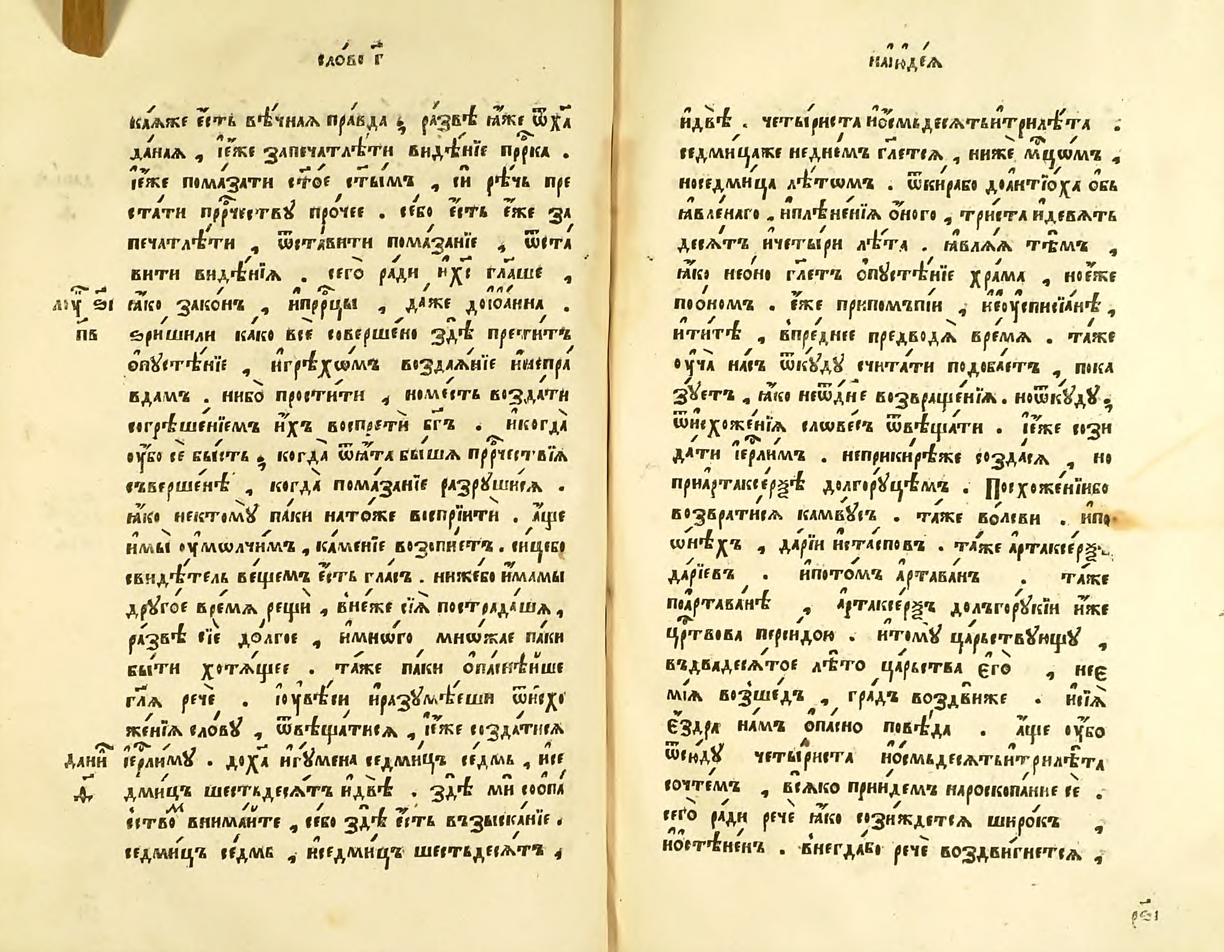 сло́во г҃
ка́яже є҆́сть вѣ́чнаѧ пра́вда ; ра́звѣ ꙗ҆́же ѿ ха҃
да́наѧ , і҆є́же запечатлѣ́ти видѣ́нїе прⷪ҇рка .
і҆є́же пома́зати ст҃о́е ст҃ы́мъ , сѝ рѣ́чь пре
ста́ти прⷪ҇рчествꙋ про́чее . се́бо є҆́сть є҆́же за
печатлѣ́ти , ѿста́вити пома́занїе , ѿста
вити видѣ́нїѧ . сего̀ ра́ди и҆ х҃с гл҃аше ,
ꙗ҆́ко зако́нъ , и҆ прⷪ҇рцы , да́же до і҆ѡа́нна .
лꙋ꙼ ѕ҃і
п҃в
ѕри́ши ли ка́ко всѐ соверше́но здѣ̀ прети́тъ
ѻ҆пꙋстѣ́нїе , и҆ грѣхѡ́мъ возда́ѧнїе и҆ неспра
вдамъ . ни́бо прости́ти , но ме́сть возда́ти
согрѣше́нїемъ и҆́хъ воспретѝ бг҃ъ . и҆ когда̀
ᲂу҆́бо сѐ бы́сть ; когда̀ ѿѧ҆та бы́шѧ прⷪ҇рчествїѧ
съверше́нѣ , когда̀ пома́занїе разрꙋши́сѧ .
ꙗ҆́ко не ктомꙋ̀ па́ки на то́же воспрїи́ти . а҆́ще
и҆ мы̀ ᲂу҆мѡлчи́мъ , ка́менїе возопїе́тъ . си́цебо
свидѣ́тель ве́щемъ є҆́сть гла́съ . ниже́бо и҆́мамы
дрꙋго́е вре́мѧ рещѝ , внеже сїѧ̀ пострада́шѧ ,
ра́звѣ сїѐ до́лгое , и҆ мно́гѡ мно́жае па́ки
бы́ти хотѧ́щее . та́же па́ки ѻ҆па́снѣйше
гл҃ѧ речѐ . і҆ ᲂу҆вѣ́си и҆ разꙋмѣ́еши ѿ и҆схо
же́нїѧ сло́вꙋ , ѿвѣща́тисѧ , і҆є́же созда́тисѧ
і҆ерⷭ҇ли́мꙋ . до ха҃ и҆гꙋ́мена седми́цъ се́дмь , и҆ се
дани꙼
д҃
дми́цъ шестьдесѧ́тъ и҆ двѣ̀ . здѣ̀ мѝ со ѻ҆па́
ство꙼ внима́йте , се́бо здѣ̀ є҆́сть възыска́нїе .
седми́цъ се́дмь , и҆ седми́цъ шестьдесѧ́тъ ,
на і҆ꙋде́ѧ
и҆ двѣ̀ . четы́риста и҆ ѻ҆́смьдесѧтъ и҆ три лѣ́та :
седми́цаже не дне́мъ гл҃етсѧ , ниже мцⷭ҇ѡмъ ,
но седми́ца лѣ́тѡмъ . ѿ ки́рабо до а҆нтїо́ха ѻ҆бъ
ꙗ҆вле́наго , и҆ плѣне́нїѧ ѻ҆́ного , три́ста и҆ де́вѧть
десѧ́тъ и҆ четы́ри лѣ́та . ꙗ҆влѧ́ѧ тѣ́мъ ,
ꙗ҆́ко не ѻ҆но гл҃етъ ѻ҆пꙋстѣ́нїе хра́ма , но є҆́же
по ѻ҆но́мъ . є҆́же при помпїи , и҆ ѻ҆ ᲂу҆еспесїа́нѣ ,
и҆ ти́тѣ , в пре́днее предводѧ̀ вре́мѧ . та́же
ᲂу҆ча̀ на́съ ѿкꙋ́дꙋ счита́ти подоба́етъ , пока
зꙋ́етъ , ꙗ҆́ко не ѿ днѐ возвраще́нїѧ . но ѿкꙋ́дꙋ ;
ѿ и҆схоже́нїѧ слове́съ ѿвѣща́ти . і҆є́же сози
да́ти і҆ерⷭ҇ли́мъ . не при ки́рѣже созда́сѧ , но
при а҆ртаксе́рѯѣ долгорꙋ́цѣмъ . По схоже́нїи́бо
возврати́сѧ камвꙋ́съ . та́же во́лсви . и҆ по
ѡ҆нѣ́хъ , да́рїи и҆ста́сповъ . та́же а҆ртаксе́рѯ
да́рїевъ . и҆ пото́мъ а҆ртава́нъ . та́же
по а҆ртава́нѣ , а҆ртаксе́рѯъ долъгорꙋ́кїи и҆́же
црⷭ҇твова перси́дою . и҆ томꙋ̀ ца́рьствꙋющꙋ ,
въ двадесѧ́тое лѣ́то ца́рьства є҆гѡ̀ , не є
мі́ѧ возше́дъ , гра́дъ воздви́же . и҆ сїѧ̀
є҆́здра на́мъ ѻ҆па́сно повѣ́да . а҆́ще ᲂу҆́бо
ѿсю́дꙋ четы́риста и҆ ѻ҆́смьдесѧтъ и҆ три лѣ́та
сочте́мъ , всѧ́ко прїи́демъ на роскопа́нїе сѐ .
сего̀ ра́ди речѐ ꙗ҆́ко сози́ждетсѧ широ́къ ,
и҆ ѻ҆стѣ́ненъ . внегда́бо речѐ воздви́гнетсѧ ,